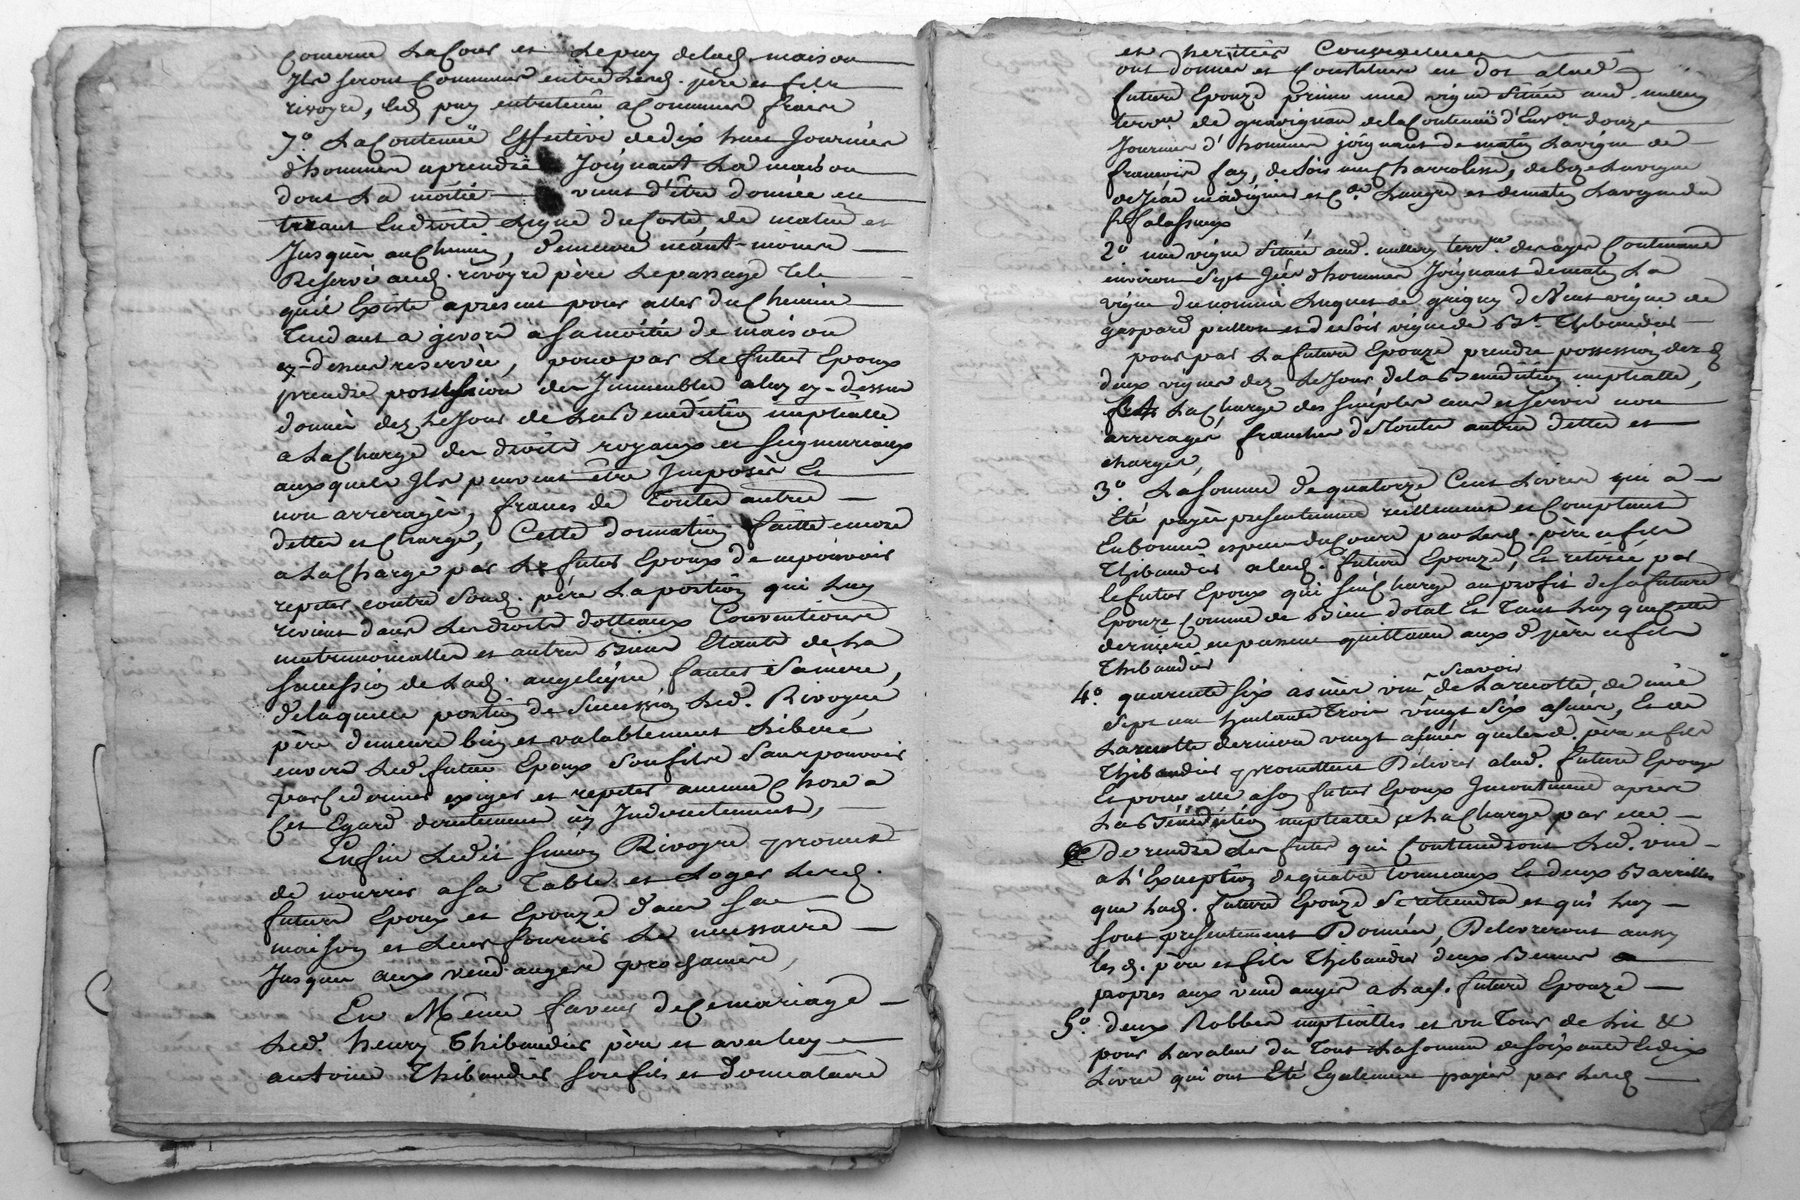 Concerne La Cour et Le puy de lad. maison
Ils seront Communs entre Lesd. père et fils
rivoyre, led. puy entretenu a Communs fraix
7.° La Contenüe Effective de dix huit Journées
d'hommes a prendre Joignant La maison
dont La moitié vient d'être donnée en
tirant En droite Ligne du Costé de matin et
Jusques au Chemin, demeure néant-moins
Reservé aud. rivoyre père Le passage Tel
qu'il Existe apresent pour aller du Chemin
Tendant a givord a sa moitié de maison
cy-dessus reservée, pour par Le futur Epoux
prendre possession des Immeubles a luy cy-dessus
donnés dez Le Jour de La Benediction nuptialle
a La Charge des droits royaux et seigneuriaux
auxquels Ils peuvent être Imposés Et
non arreragés, francs de Toutes autres
dettes et Charges, Cette donnation faitte encore
a La Charge par Le futur Epoux de ne pouvoir
repeter contre Sond. père La portion qui Luy
revient dans Les droits dottaux Conventions
matrimonialles et autres Biens Etants de La
succession de Lad. angelique fauter Sa mère,
de laquelle portion de Succession Led. Rivoyre
père demeure bien et valablement Liberé
envers Led. futur Epoux son fils Sans pouvoir
par Ce dernier exiger et repeter aucune Chose a
Cet Egard directement ny Indirectement,
Enfin Ledit Simon Rivoyre promet
de nourrir a sa Table et Loger Lesd.
futurs Epoux et Epouze dans sa
maison et Leur fournir Le necessaire
Jusques aux vendanges prochaines,
En Même faveur de Ce mariage
Led. henry Thibaudier père et avec luy
antoine Thibaudier son fils et donnataire
et heritier Contractuel
ont donnés et Constitués en dot a lad.
future Epouze primo une vigne Située aud. millery
terr.re de gravignan de la Contenüe d'Env.on douze
Journées d'hommes joignant de matin La vigne de
françois fay, de soir une Charroliere, de bize La vigne
de Jean madignier et C.de Laugre et de matin La vigne du
s.r falassieux
2.° une vigne Située aud. millery terr.re des ayes Contenant
environ Sept Jées d'hommes Joignant de matin La
vigne du nommé Luquet de grigny de Vent vigne de
gaspard pullon et de soir vigne de B.t Thibaudier
pour par La future Epouze prendre possession desd.
deux vignes dez Le Jour de la Benediction nuptialle,
La Charge des simples cens et servis non
arrerages, franches de Toutes autres dettes et
charges,
3.° La Somme de quatorze Cent Livres qui a
Eté payée presentement réellement et Comptant
En bonnes especes du Cours par Lesd. père et fils
Thibaudier a lad. future Epouze, Et retirée par
le futur Epoux qui s'en Charge au profit de sa future
Epouze Comme de Bien dotal Et Tant Luy que Cette
derniere en passent quittance aux d. père et fils
Thibaudier
4.° quarante six asnées vin scavoir de La recolte de mil
Sept Cent huitante Trois vingt Six asnées, Et de
La recolte derniere vingt asnées que Lesd. père et fils
Thibaudier promettent Delivrer a lad. future Epouze
Et pour elle a son futur Epoux Incontinent après
La Bénédiction nuptialle, a La Charge par elle
De rendre Les futs qui Contiendront Led. vin
a L'Exception de quatre tonneaux Et deux Barrilles
que Lad. future Epouze Se retiendra et qui Luy
sont presentement Donnés, Delivreront aussy
les d. père et fils Thibaudier deux Bennes
propres aux vendanges a Lad. future Epouze
5.° deux Robbes nuptialles et un Tour de Lit &
pour La valeur du Tout La somme de soixante Et dix
Livres qui ont Eté Egalement payées par Lesd.